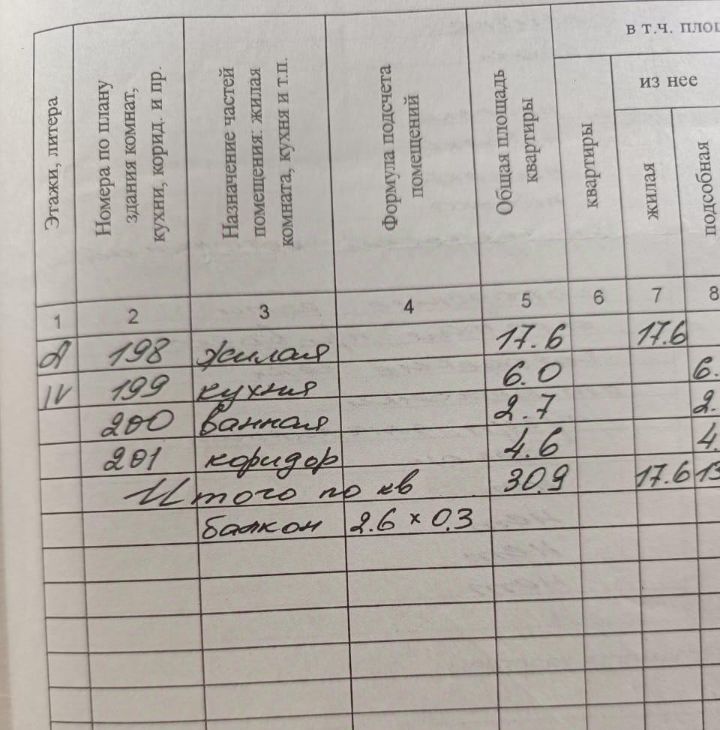 в т.ч. площ
из нее
Этажи, литера
Номера по плану
здания комнат,
кухни, корид. и пр.
Назначение частей
помещения: жилая
комната, кухня и т.п.
Формула подсчета
помещений
Общая площадь
квартиры
квартиры
жилая
подсобная
1 2 3 4 5 6 7 8
А 198 жилая 17.6 17.6
IV 199 кухня 6.0 6.
200 ванная 2.7 2.
201 коридор 4.6 4.
Итого по кв 30.9 17.6 13
балкон 2.6 × 0.3